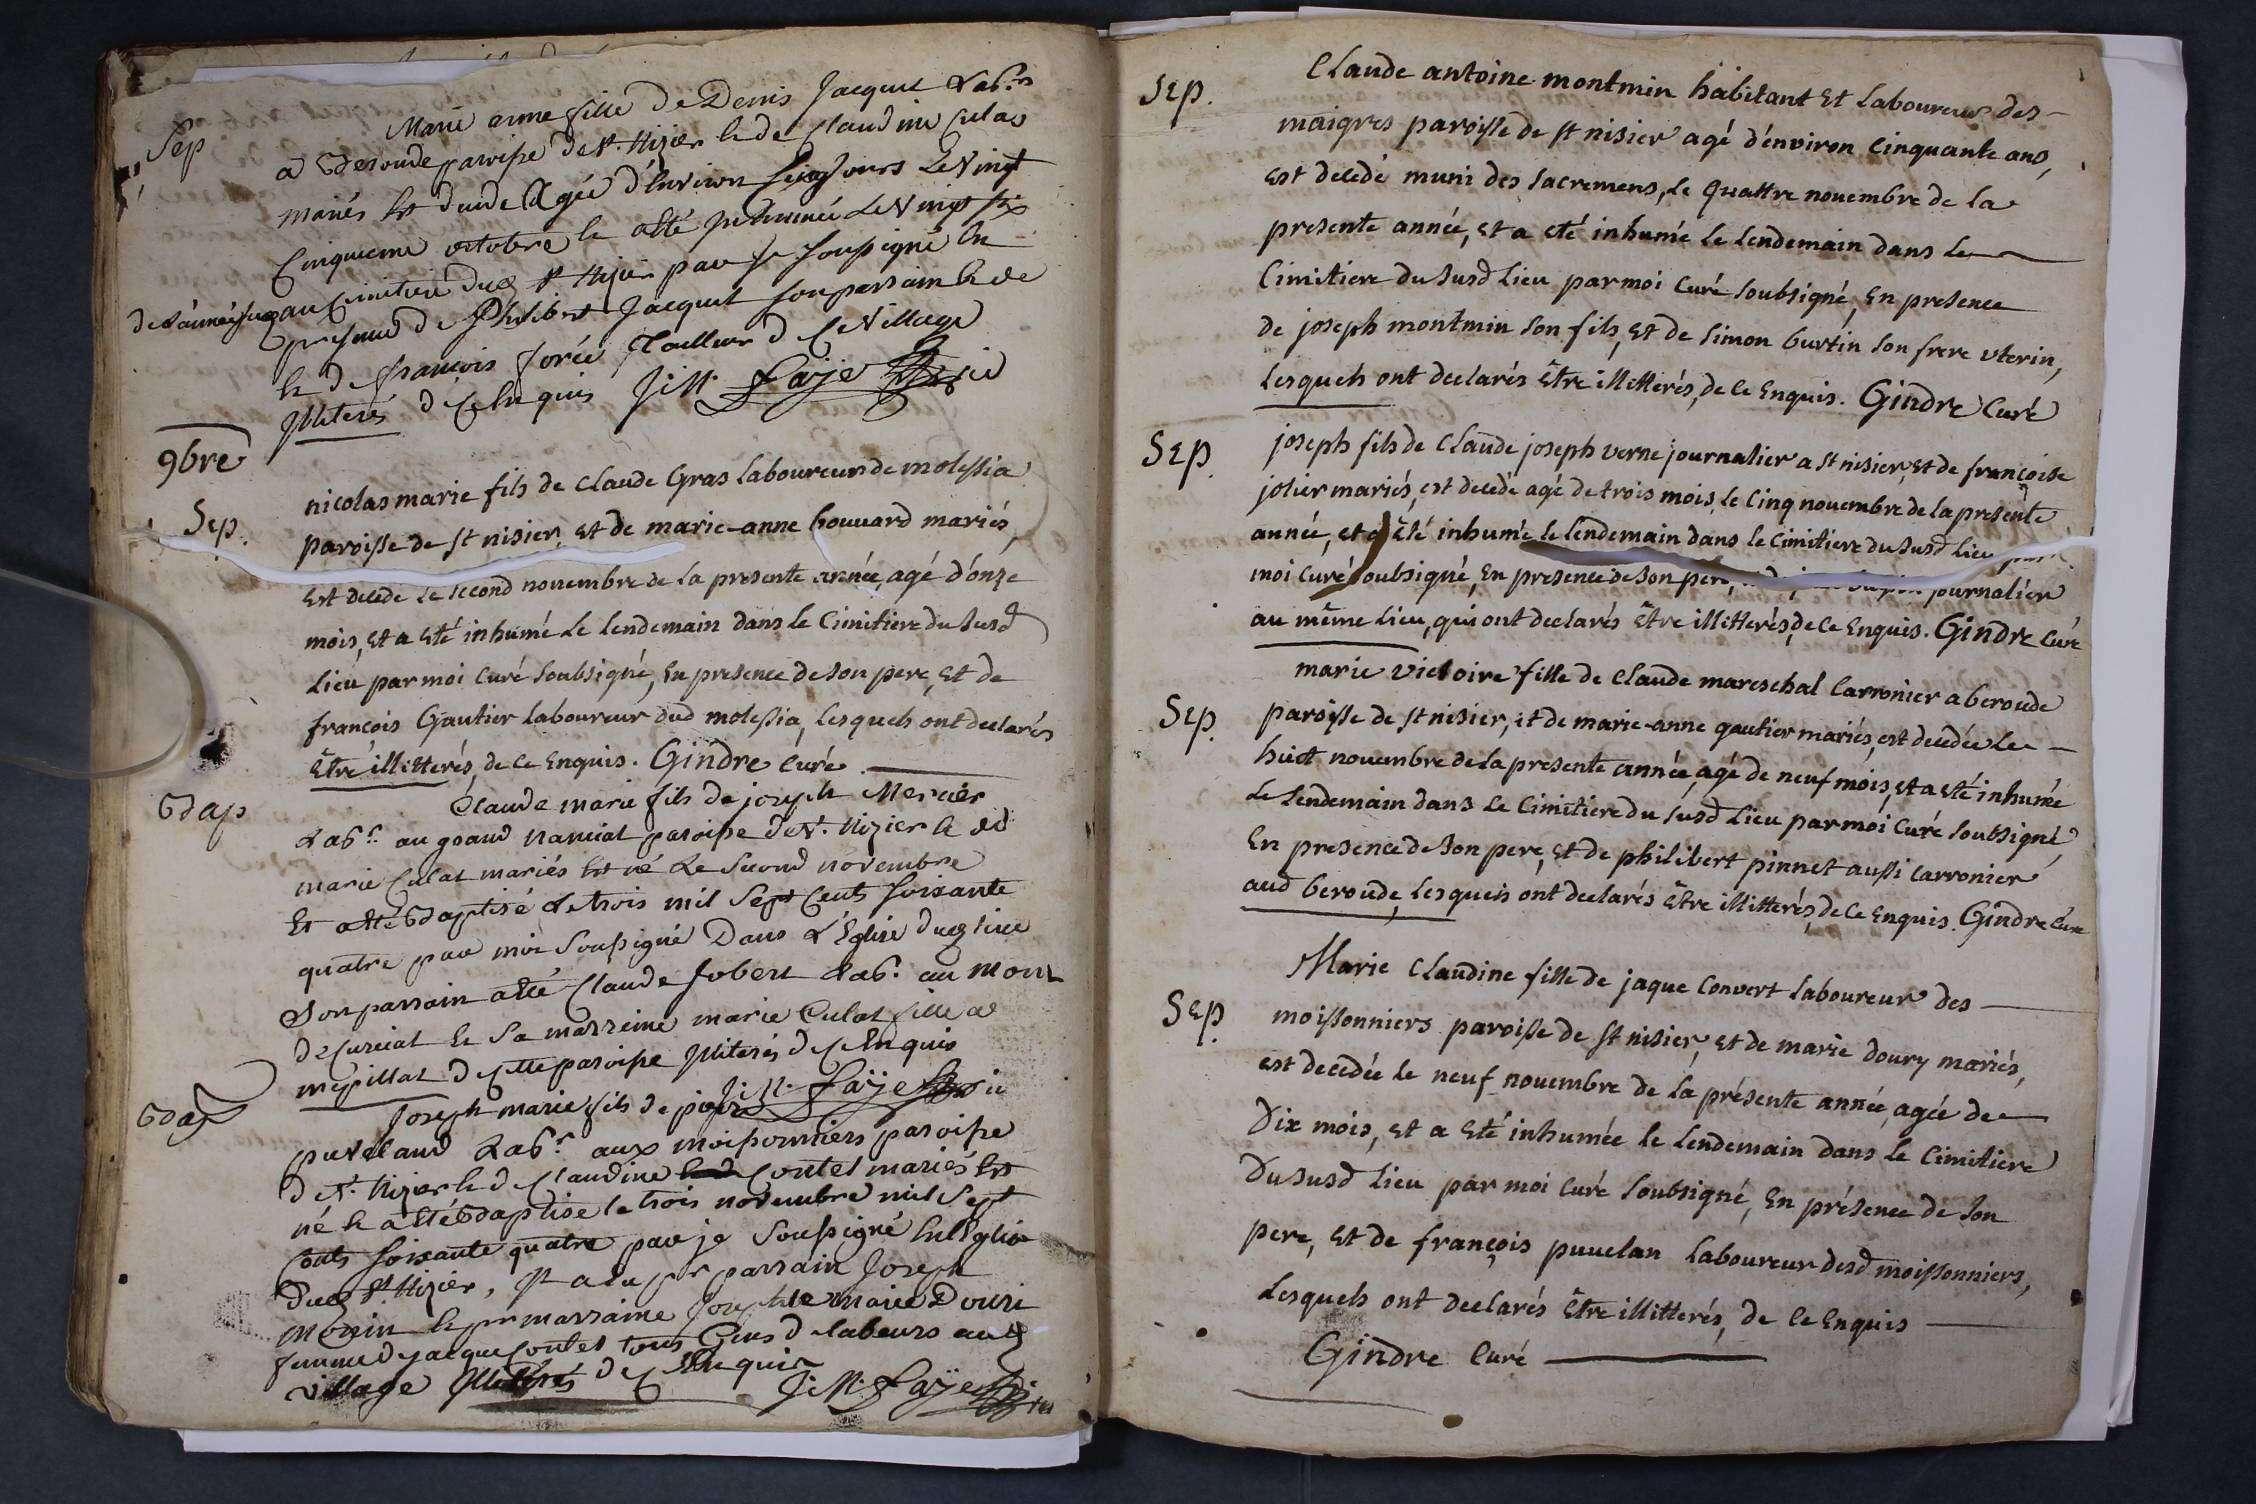 Sep
Marie anne fille de Denis Jacquet Labr
a Beroude paroisse de St. Nizier et de Claudine Culas
mariés est decede Agée d'environ jours Le Vingt
Cinquieme octobre et a été Inhumée Le Vingt six
de L'année susd au Cimitiere dud St Nizier par je soussigné en
presence de Philibert Jacquet son parrain et de
et de françois forée tailleur de ce Village
Illiterés de ce enquis J: M: Faÿe
9bre
Sep.
nicolas marie fils de claude Gras laboureur de molessia
paroisse de st nisier, et de marie-anne bouvard mariés,
est decede le second novembre de la presente année, agé d'onze
mois, et a eté inhumé le lendemain dans le Cimitiere du susd
lieu par moi Curé soubsigné, en presence de son pere, et de
françois Gautier laboureur dud molessia, lesquels ont declarés
être illitterés, de ce enquis. Gindre Curé
Bap
Claude marie fils de joseph Mercier
Labr. au grand Nanciat paroisse de St. Nizier et de
marie Culat mariés est né Le Second novembre
Et a été Baptisé Le trois mil Sept Cents Soixante
quatre par moi Soussigné Dans L'Eglise dud lieu
Son parrain a été Claude Jobert Labr. au Mont
de Curciat et Sa marreine marie Culat fille a
mepillat de cette paroisse Illiterés de ce Enquis
J: M: Faÿe
Bap
Joseph marie fils de
puveland Labr. aux moissonniers paroisse
de St. Nizier et de Claudine Contet mariés Est
né et a été Baptise le trois novembre mil Sept
Cents soixante quatre par je Soussigné En L'Eglise
dud St Nizier, Il a eu pr parrain Joseph
Monin et pr marraine Josephte marie Douri
femme de jacque Contet tous Gens de labeurs aud
village Illiterés de ce Enquis
J: M: Faÿe
Sep.
Claude antoine montmin habitant et laboureur des
maigres paroisse de st nisier agé d'environ Cinquante ans,
est decedé muni des sacremens, le quattre novembre de la
presente année, et a eté inhumé le lendemain dans le
Cimitiere du susd lieu par moi Curé soubsigné, en presence
de joseph montmin son fils, et de simon burtin son frere uterin,
lesquels ont declarés être illitterés, de ce enquis. Gindre Curé
Sep.
joseph fils de claude joseph verne journalier a st nisier, et de françoise
jolier mariés, est decedé agé de trois mois, le cinq novembre de la presente
année, et a été inhumé le lendemain dans le Cimitiere du susd lieu par
moi Curé soubsigné, en presence de son pere, journalier
au même lieu, qui ont declarés être illitterés, de ce enquis. Gindre Curé
Sep.
marie victoire fille de claude mareschal Carronier a beroude
paroisse de st nisier, et de marie-anne gautier mariés, est decedée le
huit novembre de la presente année, agé de neuf mois, et a eté inhumé
le lendemain dans le Cimitiere du susd lieu par moi Curé soubsigné,
en presence de son pere, et de philibert pinnet aussi Carronier
aud beroude, lesquels ont declarés être illitterés, de ce enquis. Gindre Curé
Sep.
Marie Claudine fille de jaque Convert laboureur des
moissonniers paroisse de st nisier, et de marie doury mariés,
est decedée le neuf novembre de la présente année, agée de
Dix mois, et a eté inhumée le lendemain dans le Cimitiere
Du susd lieu par moi Curé soubsigné, en présence de son
pere, et de françois puvelan laboureur desd moissonniers,
lesquels ont declarés être illitterés, de ce enquis
Gindre Curé